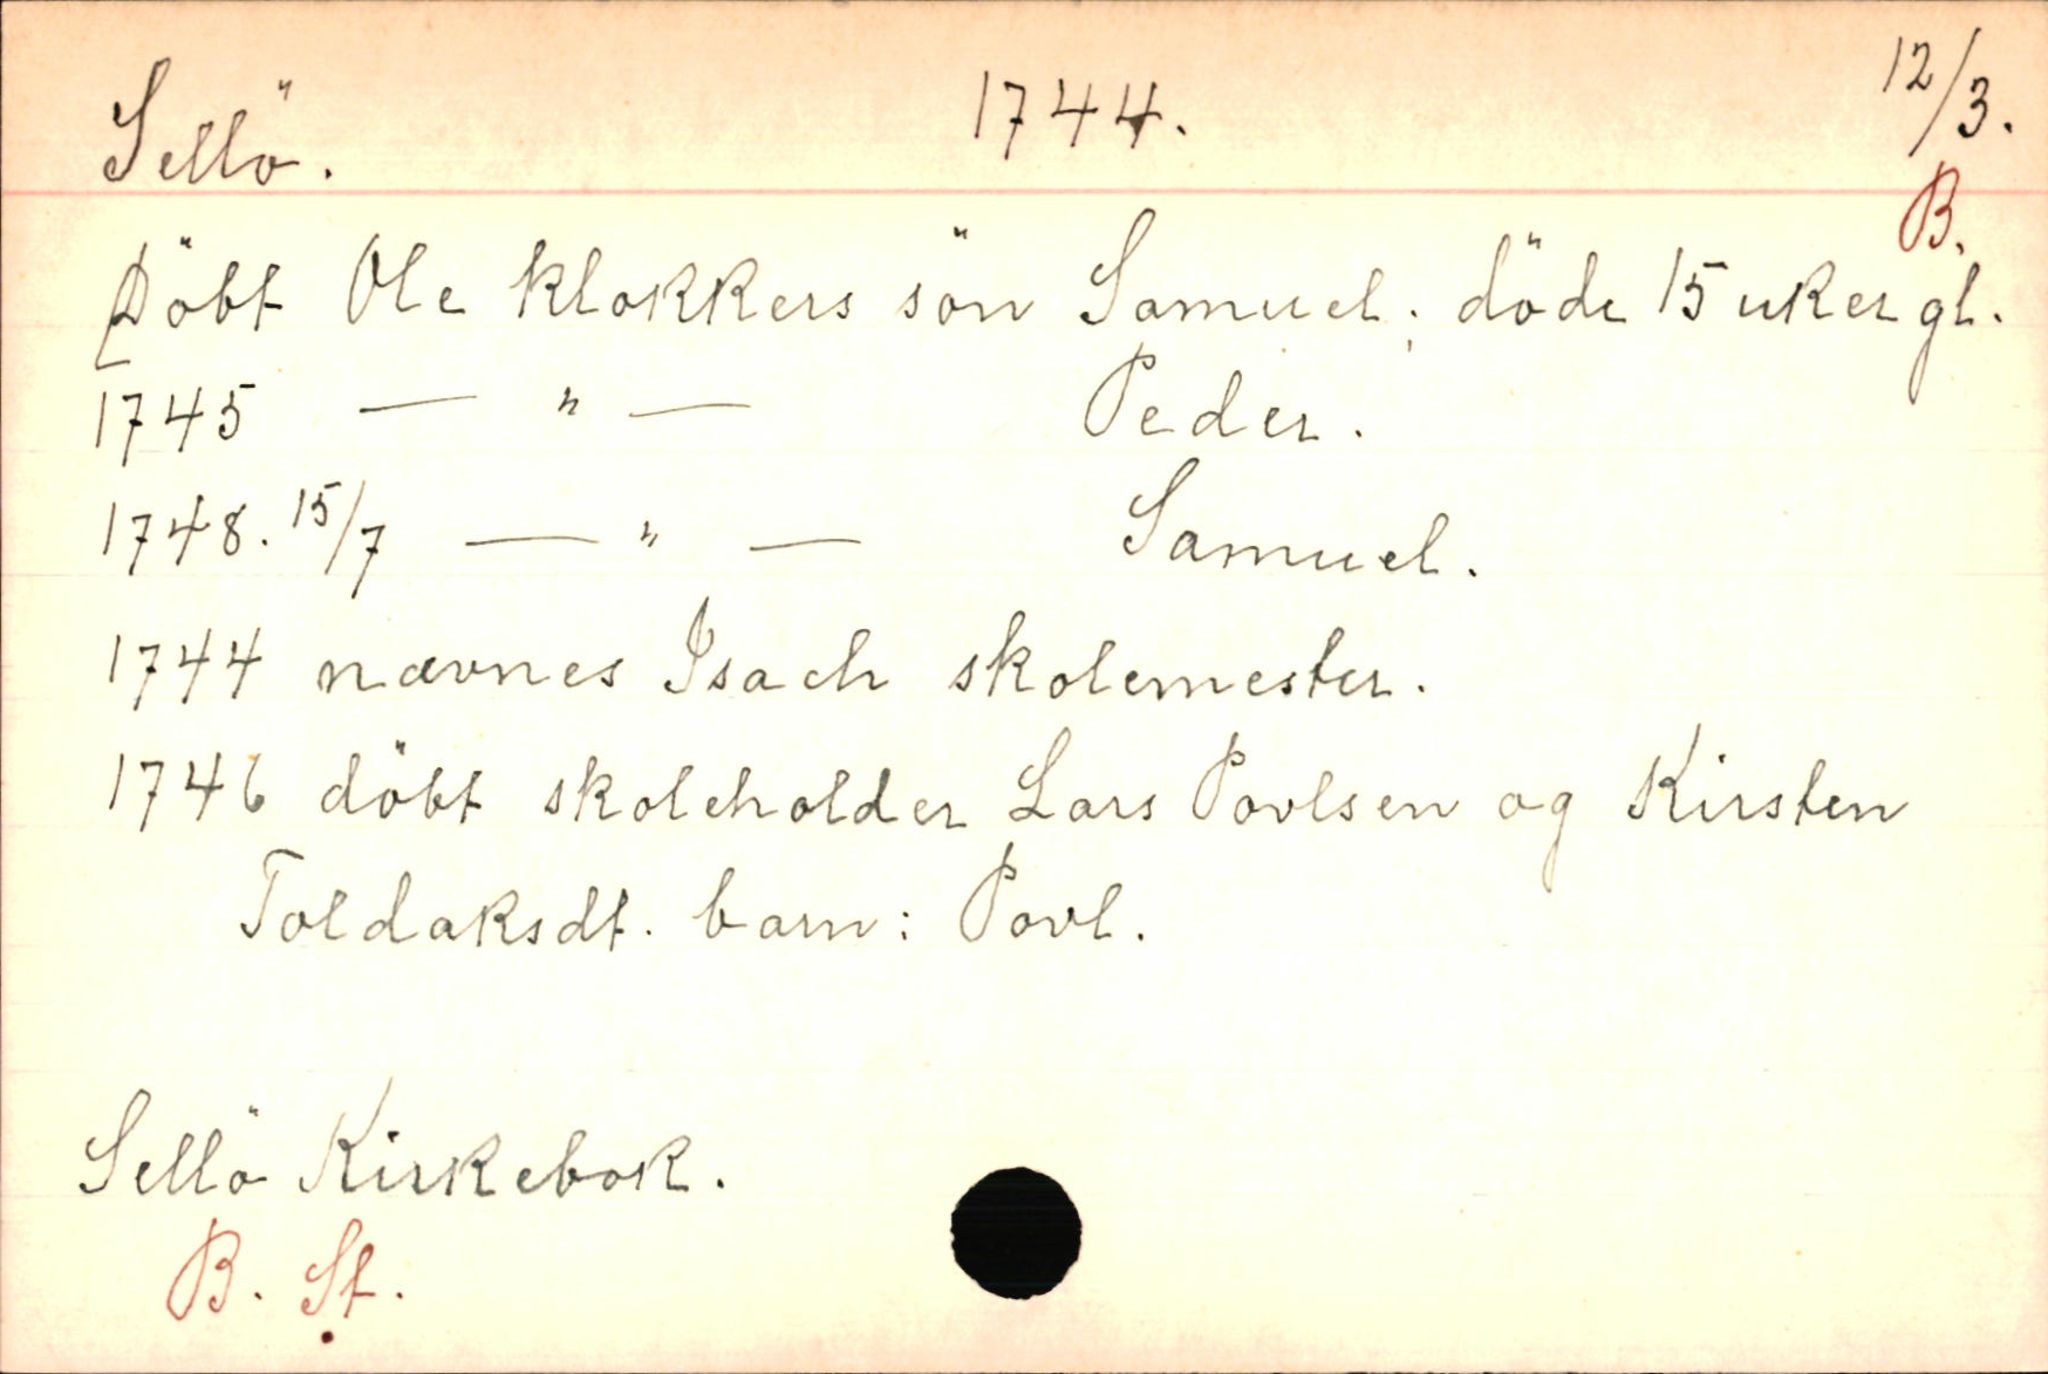 Sellö. 1744. 12/3.
B.
Döbt Ole klokkers sön Samuel; döde 15 uker gl.
1745 — " — Peder.
1748. 15/7 — " — Samuel.
1744 nævnes Isach skolemester.
1746 döbt skoleholder Lars Povlsen og Kirsten
Toldaksdt. barn: Povl.
Sellö Kirkebok.
B. St.